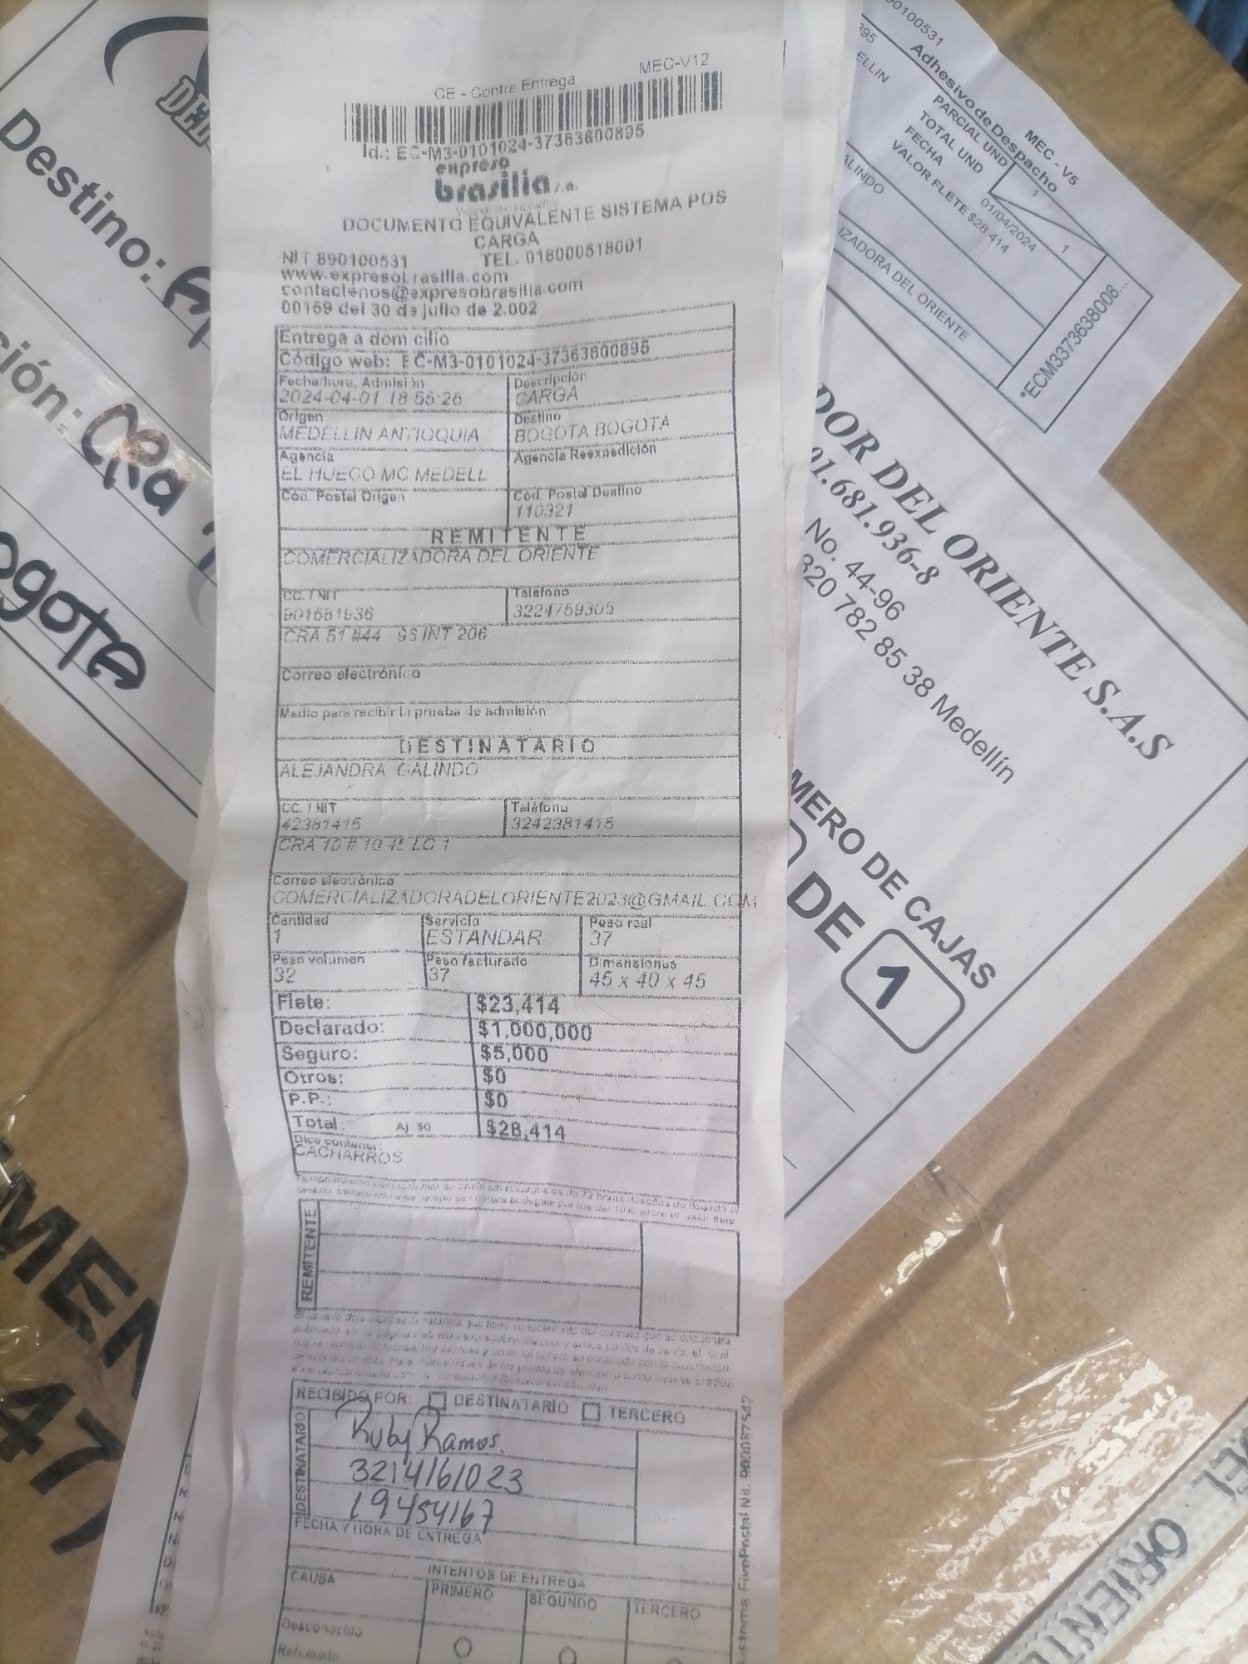 CE - Contra Entrega
MEC-V12
Id.: EC-M3-0101024-37363800895
expreso
brasilia s.a.
DOCUMENTO EQUIVALENTE SISTEMA POS
CARGA
NIT 890100531 TEL. 018000518001
www.expresobrasilia.com
contactenos@expresobrasilia.com
00169 del 30 de julio de 2.002
Entrega a domicilio
Código web: EC-M3-0101024-37363800895
Fecha/hora, Admisión
2024-04-01 18:56:26
Descripción
CARGA
Origen
MEDELLIN ANTIOQUIA
Destino
BOGOTA BOGOTA
Agencia
EL HUECO MC MEDELL
Agencia Reexpedición
Cod. Postal Origen
Cod. Postal Destino
110321
REMITENTE
COMERCIALIZADORA DEL ORIENTE
CC. / NIT
901681936
Teléfono
3224759305
CRA 51 #44 - 96 INT 206
Correo electrónico
Medio para recibir la prueba de admisión
DESTINATARIO
ALEJANDRA GALINDO
CC. / NIT
42381415
Teléfono
3242381415
CRA 10 # 10 LC 1
Correo electrónico
COMERCIALIZADORADELORIENTE2023@GMAIL.COM
Cantidad
1
Servicio
ESTANDAR
Peso real
37
Peso volumen
32
Peso facturado
37
Dimensiones
45 x 40 x 45
Flete: $23,414
Declarado: $1,000,000
Seguro: $5,000
Otros: $0
P.P.: $0
Total: Aj. $0 $28,414
Dice contener:
CACHARROS
REMITENTE
RECIBIDO POR: DESTINATARIO TERCERO
DESTINATARIO
Ruby Ramos.
3214161023
19454167
FECHA Y HORA DE ENTREGA
INTENTOS DE ENTREGA
CAUSA
PRIMERO
SEGUNDO
TERCERO
Desconocido
Rehusado
Destino:
ción: CRA
ogota
90100531
Adhesivo de Despacho
MEC - V5
PARCIAL UND 1
TOTAL UND 1
FECHA 01/04/2024
VALOR FLETE $28,414
ELLIN
ALINDO
IZADORA DEL ORIENTE
*ECM3373638008...
DOR DEL ORIENTE S.A.S
01.681.936-8
No. 44-96
320 782 85 38 Medellín
MERO DE CAJAS
DE 1
MEN
477
DEL
ORIENTE